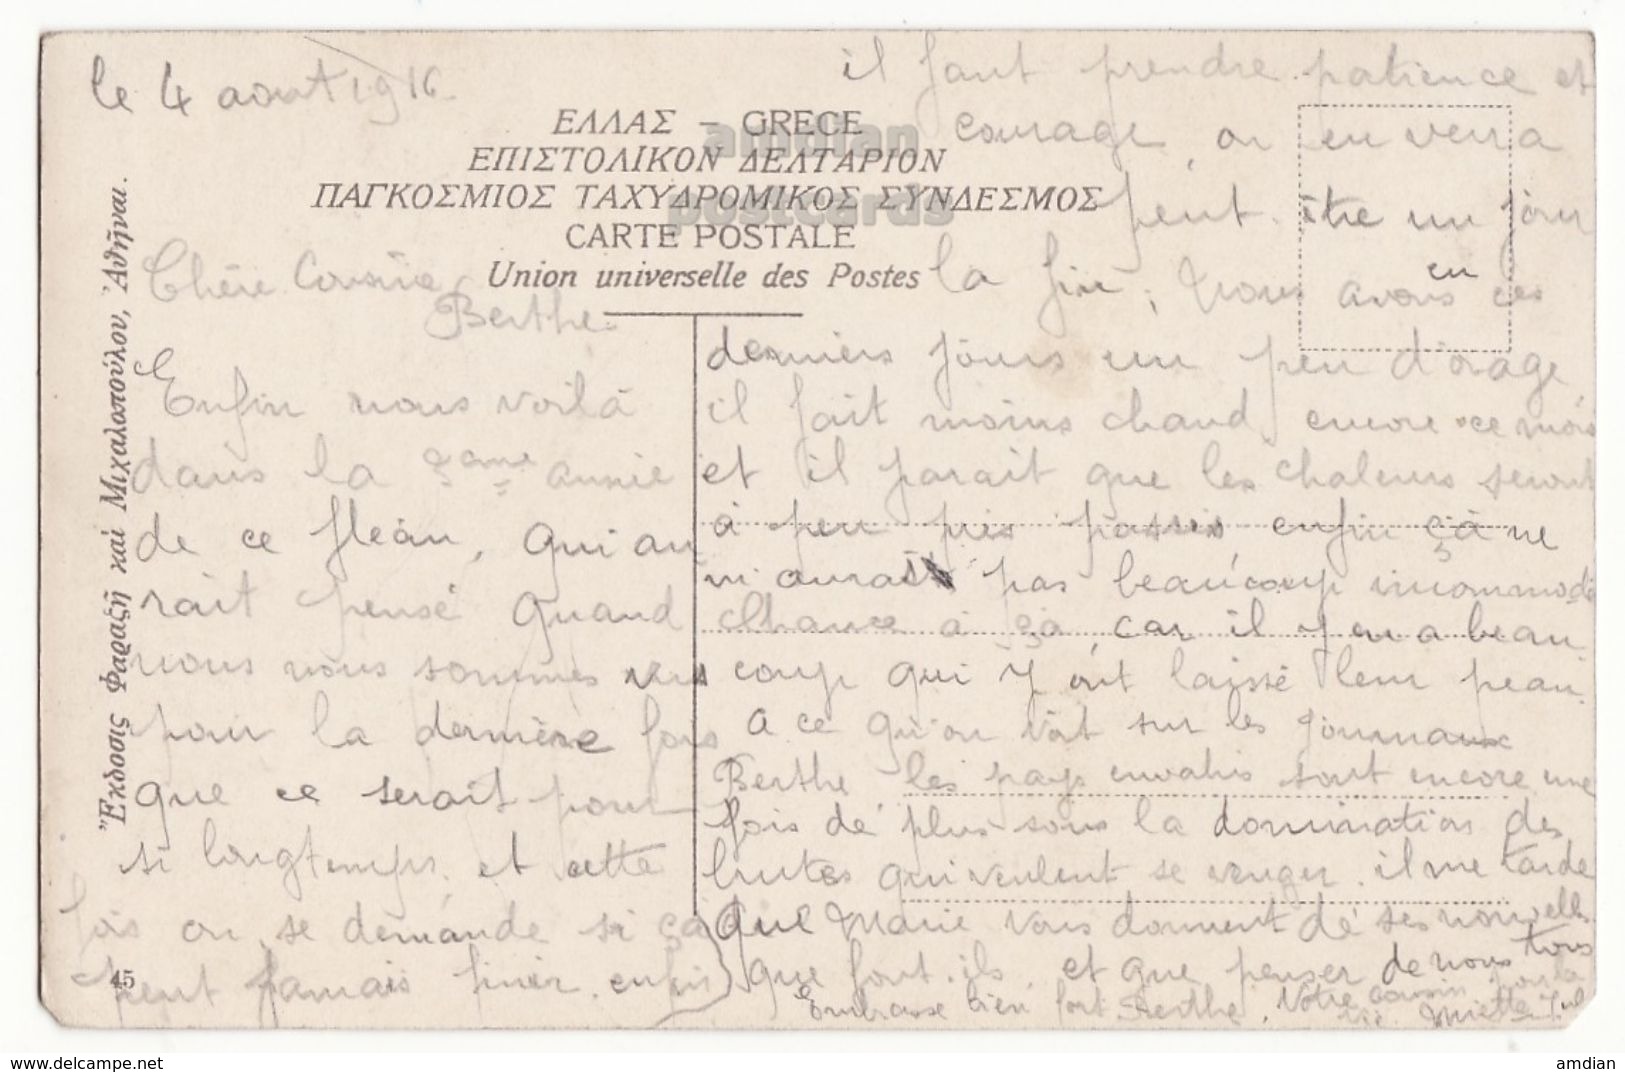 le 4 aout 1916
ΕΛΛΑΣ – GRECE
ΕΠΙΣΤΟΛΙΚΟΝ ΔΕΛΤΑΡΙΟΝ
ΠΑΓΚΟΣΜΙΟΣ ΤΑΧΥΔΡΟΜΙΚΟΣ ΣΥΝΔΕΣΜΟΣ
CARTE POSTALE
Union universelle des Postes
amdian
postcards
Ἔκδοσις Φαραζῆ καὶ Μιχαλοπούλου, Ἀθῆναι.
45
Chère Cousine
Berthe
Enfin nous voilà
dans la 3eme année
de ce fleàu, qui au
rait pensé quand
nous nous sommes vus
pour la dernière fois
que ce serait pour
si longtemps et cette
fois on se demande si çà
peut jamais finir. enfin
il faut prendre patience et
courage, on en verra
peut être un jour
la fin, Nous avons en ces
derniers jours un peu d'orage
il fait moins chaud encore ce mois
et il parait que les chaleurs seront
à peu près passés enfin çà ne
m'aura pas beaucoup incommodé
Chance à çà, car il y en a beau
coup qui y ont laissé leur peau
A ce qu'on voit sur les journaux
Berthe les pays envahis sont encore une
fois de plus sous la domination des
brutes qui veulent se venger. il me tarde
que Marie vous donnent de ses nouvelles
que font-ils et que penser de nous tous
Embrasse bien fort Berthe. Votre cousin pour la
vie
amdian
www.delcampe.net